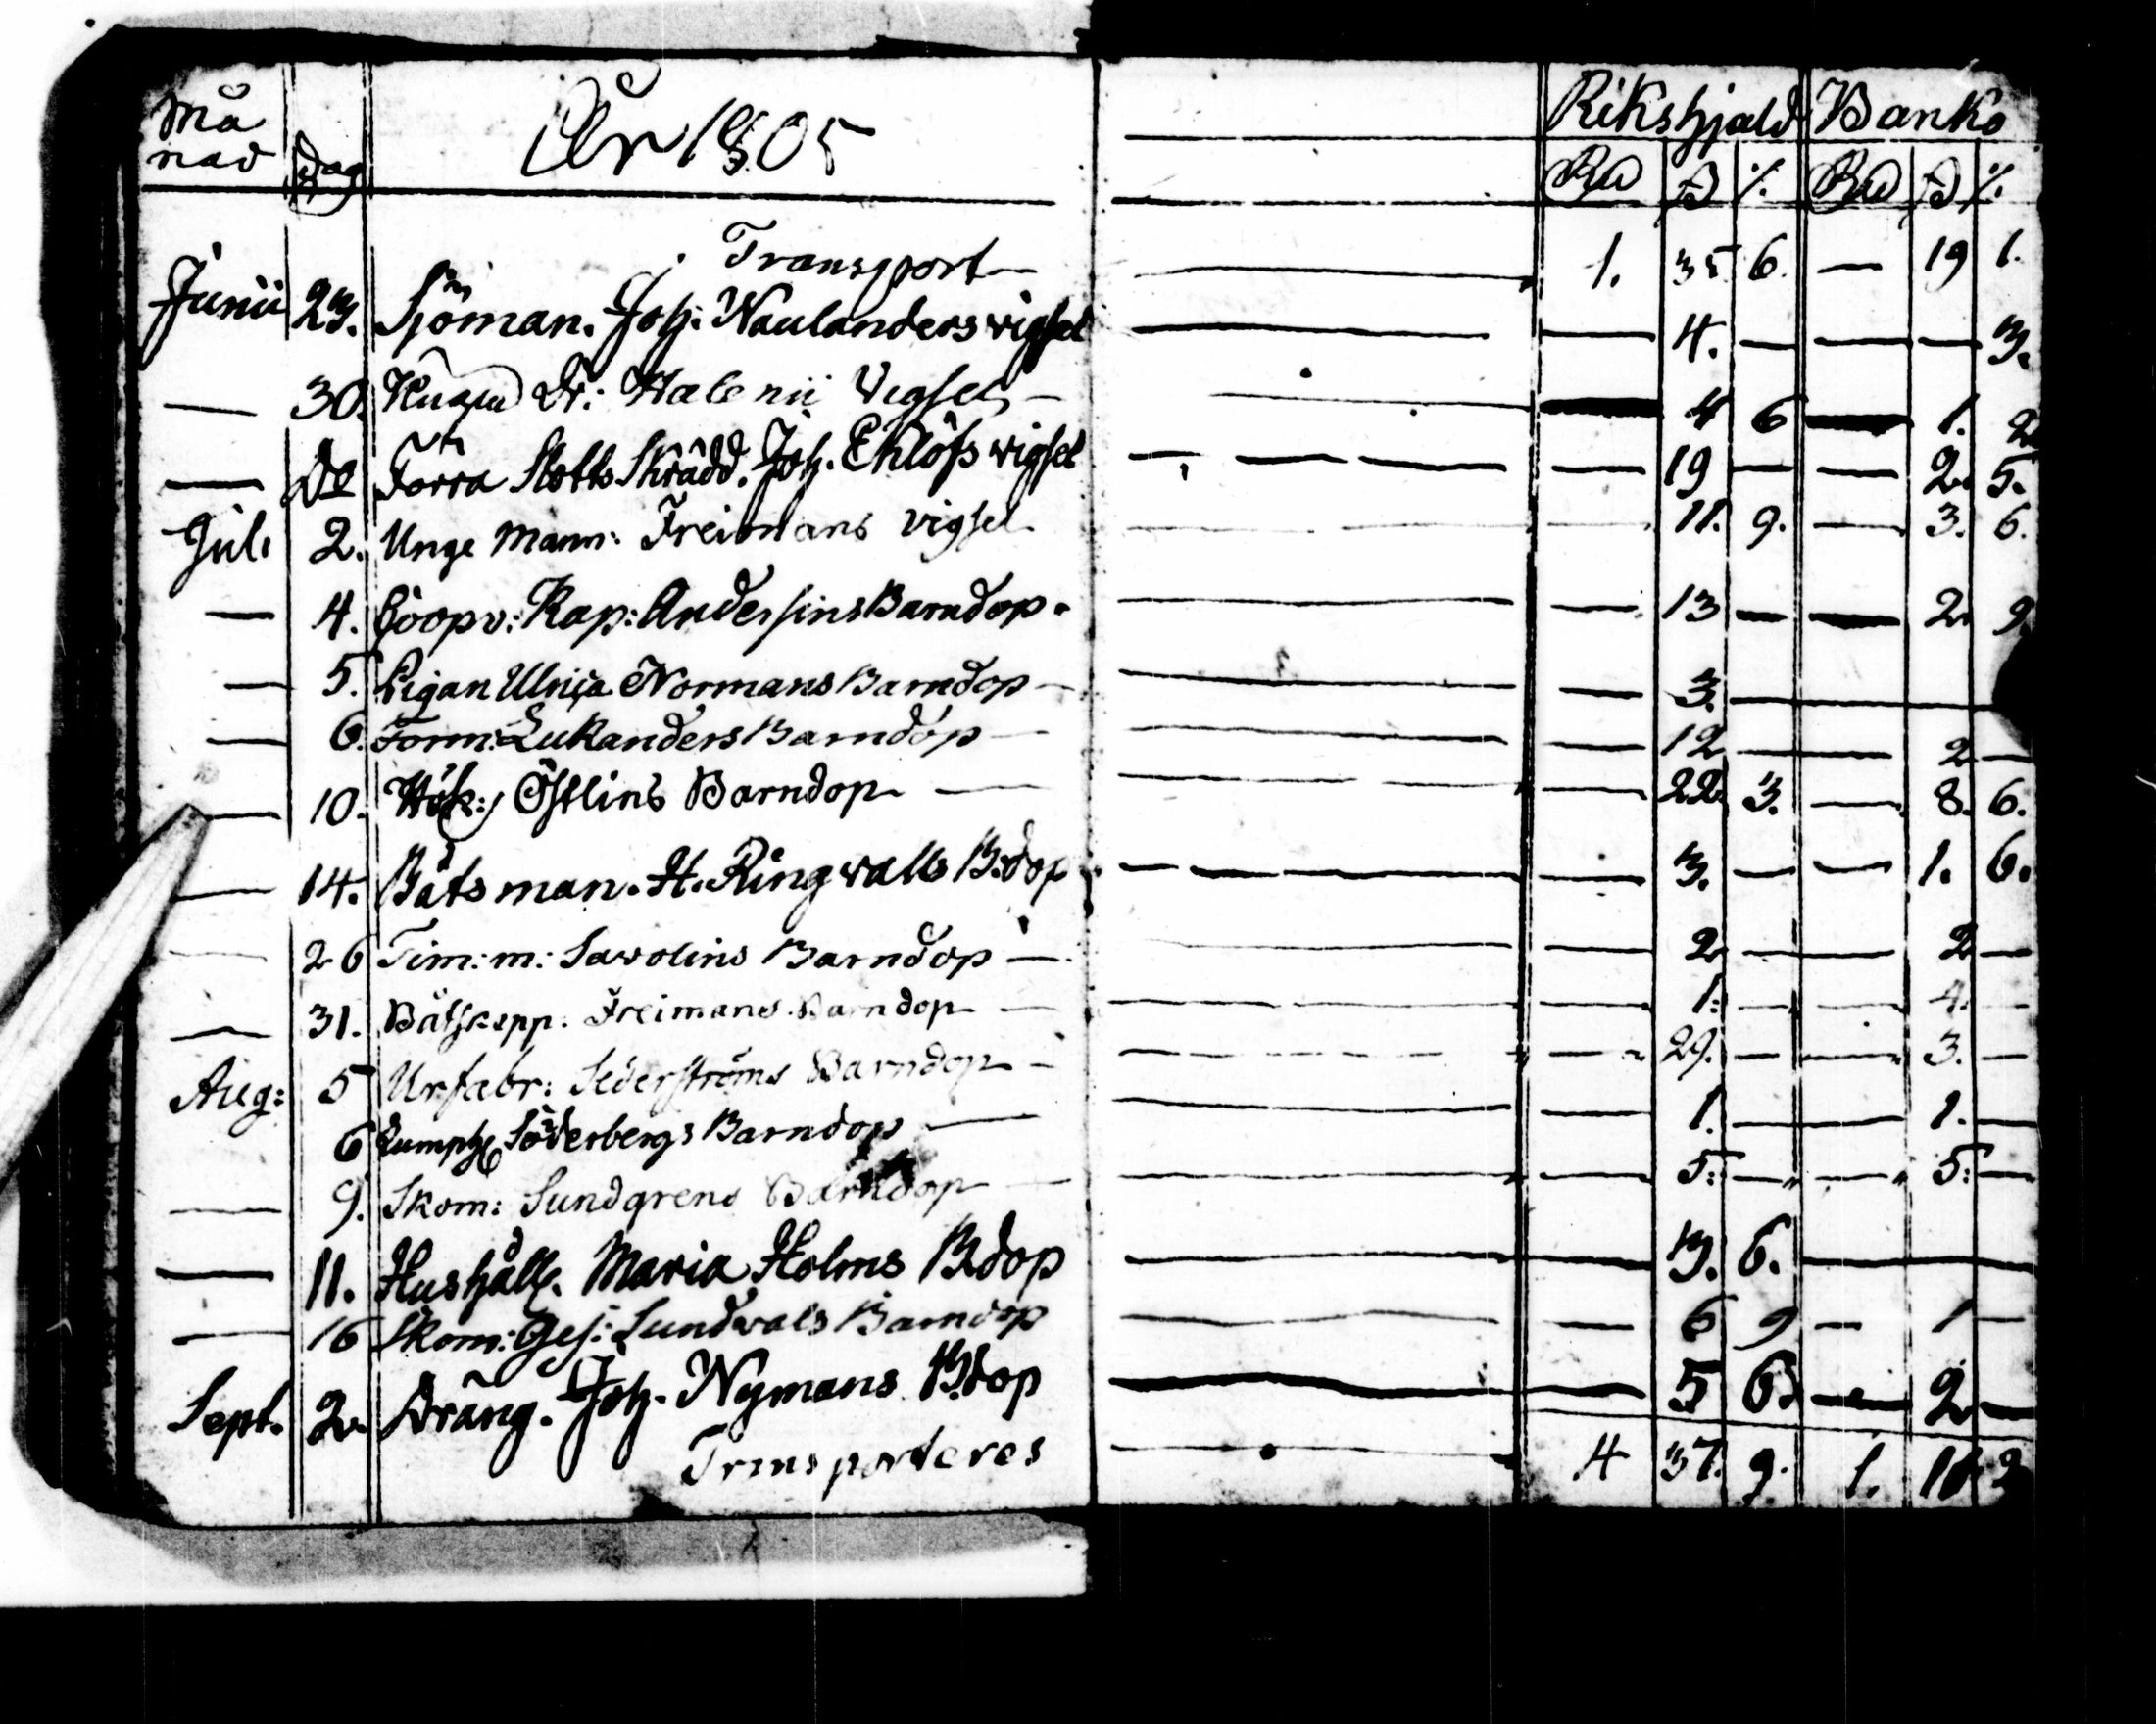 Må
nad Dag År 1805 Rikshjald Banko
Rd ß %. Rd ß %.
Transport — 1. 35 6. — 19 1.
Junii 23. Sjöman. Joh: Naulanders vigsel — — 4. — — — 3.
— 30. Dr: Vigsel — — 4 6 — 1. 2
— Do Förra Slotts Skrädd. Joh. Ehlöfs vigsel — — 19 — — 2. 5.
Jul. 2. Unge Mann: Freimans vigsel — — 11. 9. — 3. 6.
— 4. Coopv: Kap: Andersins Barndop. — — 13 — — 2. 9.
— 5. Pigan Ulrica Normans Barndop — — 3. —
— 6. Form: Lukanders Barndop — — 12 — — 2 —
— 10. Hök: Östlins Barndop — — 22 3. — 8. 6.
— 14. Båtsman. H. Ringwalls B:dop — — 3. — — 1. 6.
— 26 Tim: m: Savolins Barndop — — 2 — — 2 —
— 31. Båtskepp. Freimans Barndop — — 1: — — 4. —
Aug: 5 Urfabr: Sederströms Barndop — — 29. — — 3. —
6 Söderbergs Barndop — — 1. — — 1. —
— 9. Skom: Sundgrens Barndop — — 5: — — 5: —
— 11. Hushåll. Maria Holms B.dop — — 13. 6. —
— 16 Skom: Ges: Sundvals Barndop — — 6 9 — 1 —
Sept. 2. Dräng. Joh. Nymans B.dop — — 5 6. — 2 —
Transporteres — 4 37. 9. 1.